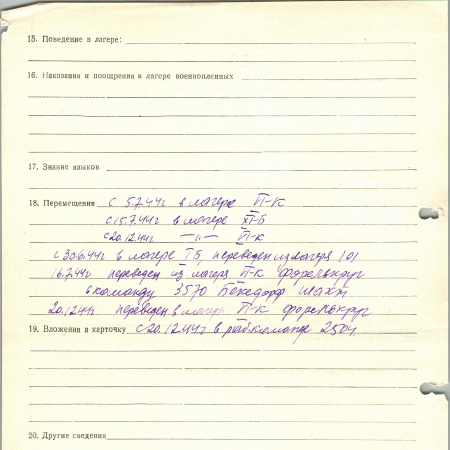 15. Поведение в лагере:
16. Наказания и поощрения в лагере военнопленных
17. Знание языков
18. Перемещения с 5.7.44г в лагере VI-К
с 15.7.44г в лагере XI-Б
с 20.12.44г —"— VI-К
с 30.6.44г в лагере ТБ, переведен из лагеря 101
16.7.44г переведен из лагеря VI-К
в команду 3570 шахт
20.12.44г переведен в лагерь VI-К
19. Вложения в карточку с 20.12.44г в рабкоманде 2504.
20. Другие сведения